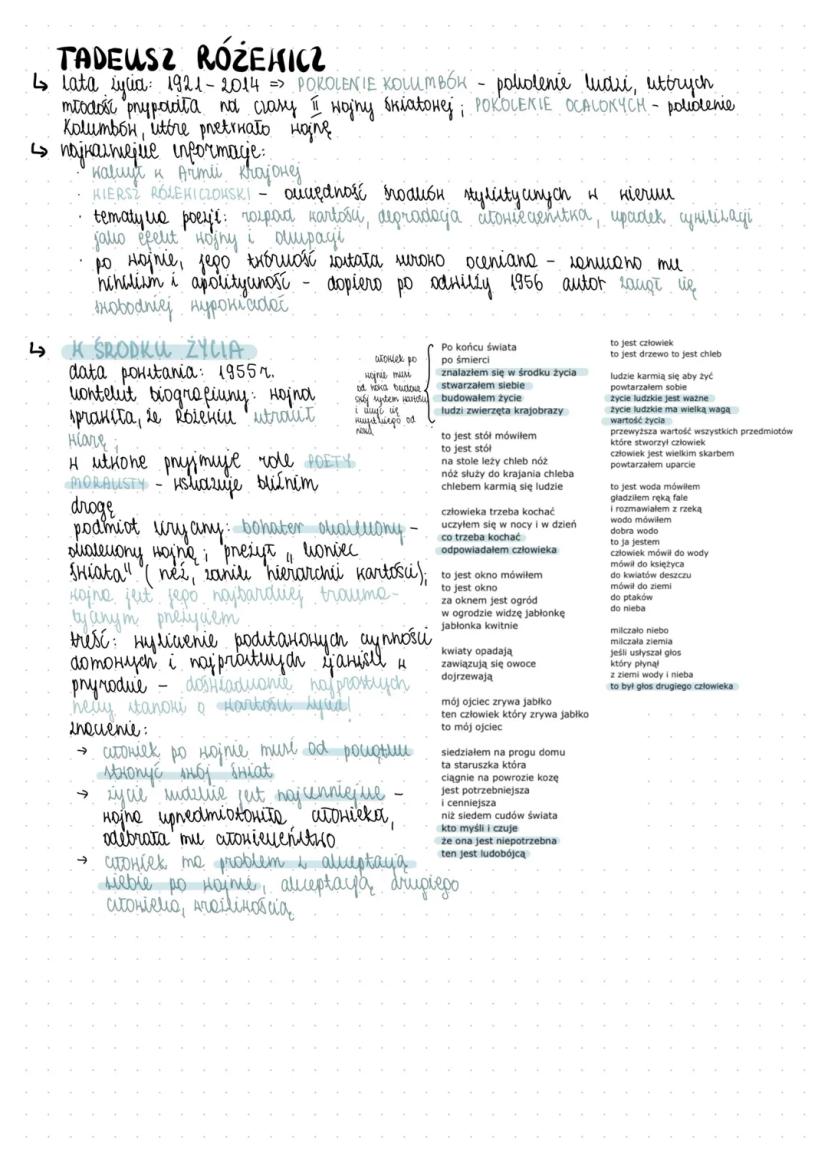 TADEUSZ RÓŻEWICZ
↳ lata życia: 1921-2014 => POKOLENIE KOLUMBÓW - pokolenie ludzi, których
młodość przypadła na czasy II wojny światowej; POKOLENIE OCALONYCH - pokolenie
Kolumbów, które przetrwało wojnę
↳ najważniejsze informacje:
· walczył w Armii Krajowej
· WIERSZ RÓŻEWICZOWSKI - oszczędność środków stylistycznych w wierszu
· tematyka poezji: rozpad wartości, degradacja człowieczeństwa, upadek cywilizacji
jako efekt wojny i okupacji
· po wojnie, jego twórczość została surowo oceniana - zarzucano mu
nihilizm i apolityczność - dopiero po odwilży 1956 autor zaczął się
swobodniej wypowiadać
↳ W ŚRODKU ŻYCIA
data powstania: 1955 r.
kontekst biograficzny: wojna
sprawiła, że Różewicz utracił
wiarę;
w utworze przyjmuje rolę POETY
MORALISTY - wskazuje bliźnim
drogę
podmiot liryczny: bohater okaleczony -
okaleczony wojną; przeżył "koniec
świata" (rzeź, zanik hierarchii wartości);
wojna jest jego najbardziej trauma-
tycznym przeżyciem
treść: wyliczenie podstawowych czynności
domowych i najprostszych zjawisk w
przyrodzie - doświadczanie najprostszych
rzeczy stanowi o wartości życia!
znaczenie:
→ człowiek po wojnie musi od początku
stworzyć swój świat
→ życie ludzkie jest najcenniejsze -
wojna uprzedmiotowiła człowieka,
odebrała mu człowieczeństwo
→ człowiek ma problem z akceptacją
siebie po wojnie, akceptacją drugiego
człowieka, wrażliwością
człowiek po
wojnie musi
od nowa budować
swój system wartości
i uczyć się
wszystkiego od
nowa
Po końcu świata
po śmierci
znalazłem się w środku życia
stwarzałem siebie
budowałem życie
ludzi zwierzęta krajobrazy
to jest stół mówiłem
to jest stół
na stole leży chleb nóż
nóż służy do krajania chleba
chlebem karmią się ludzie
człowieka trzeba kochać
uczyłem się w nocy i w dzień
co trzeba kochać
odpowiadałem człowieka
to jest okno mówiłem
to jest okno
za oknem jest ogród
w ogrodzie widzę jabłonkę
jabłonka kwitnie
kwiaty opadają
zawiązują się owoce
dojrzewają
mój ojciec zrywa jabłko
ten człowiek który zrywa jabłko
to mój ojciec
siedziałem na progu domu
ta staruszka która
ciągnie na powrozie kozę
jest potrzebniejsza
i cenniejsza
niż siedem cudów świata
kto myśli i czuje
że ona jest niepotrzebna
ten jest ludobójcą
to jest człowiek
to jest drzewo to jest chleb
ludzie karmią się aby żyć
powtarzałem sobie
życie ludzkie jest ważne
życie ludzkie ma wielką wagę
wartość życia
przewyższa wartość wszystkich przedmiotów
które stworzył człowiek
człowiek jest wielkim skarbem
powtarzałem uparcie
to jest woda mówiłem
gładziłem ręką fale
i rozmawiałem z rzeką
wodo mówiłem
dobra wodo
to ja jestem
człowiek mówił do wody
mówił do księżyca
do kwiatów deszczu
mówił do ziemi
do ptaków
do nieba
milczało niebo
milczała ziemia
jeśli usłyszał głos
który płynął
z ziemi wody i nieba
to był głos drugiego człowieka